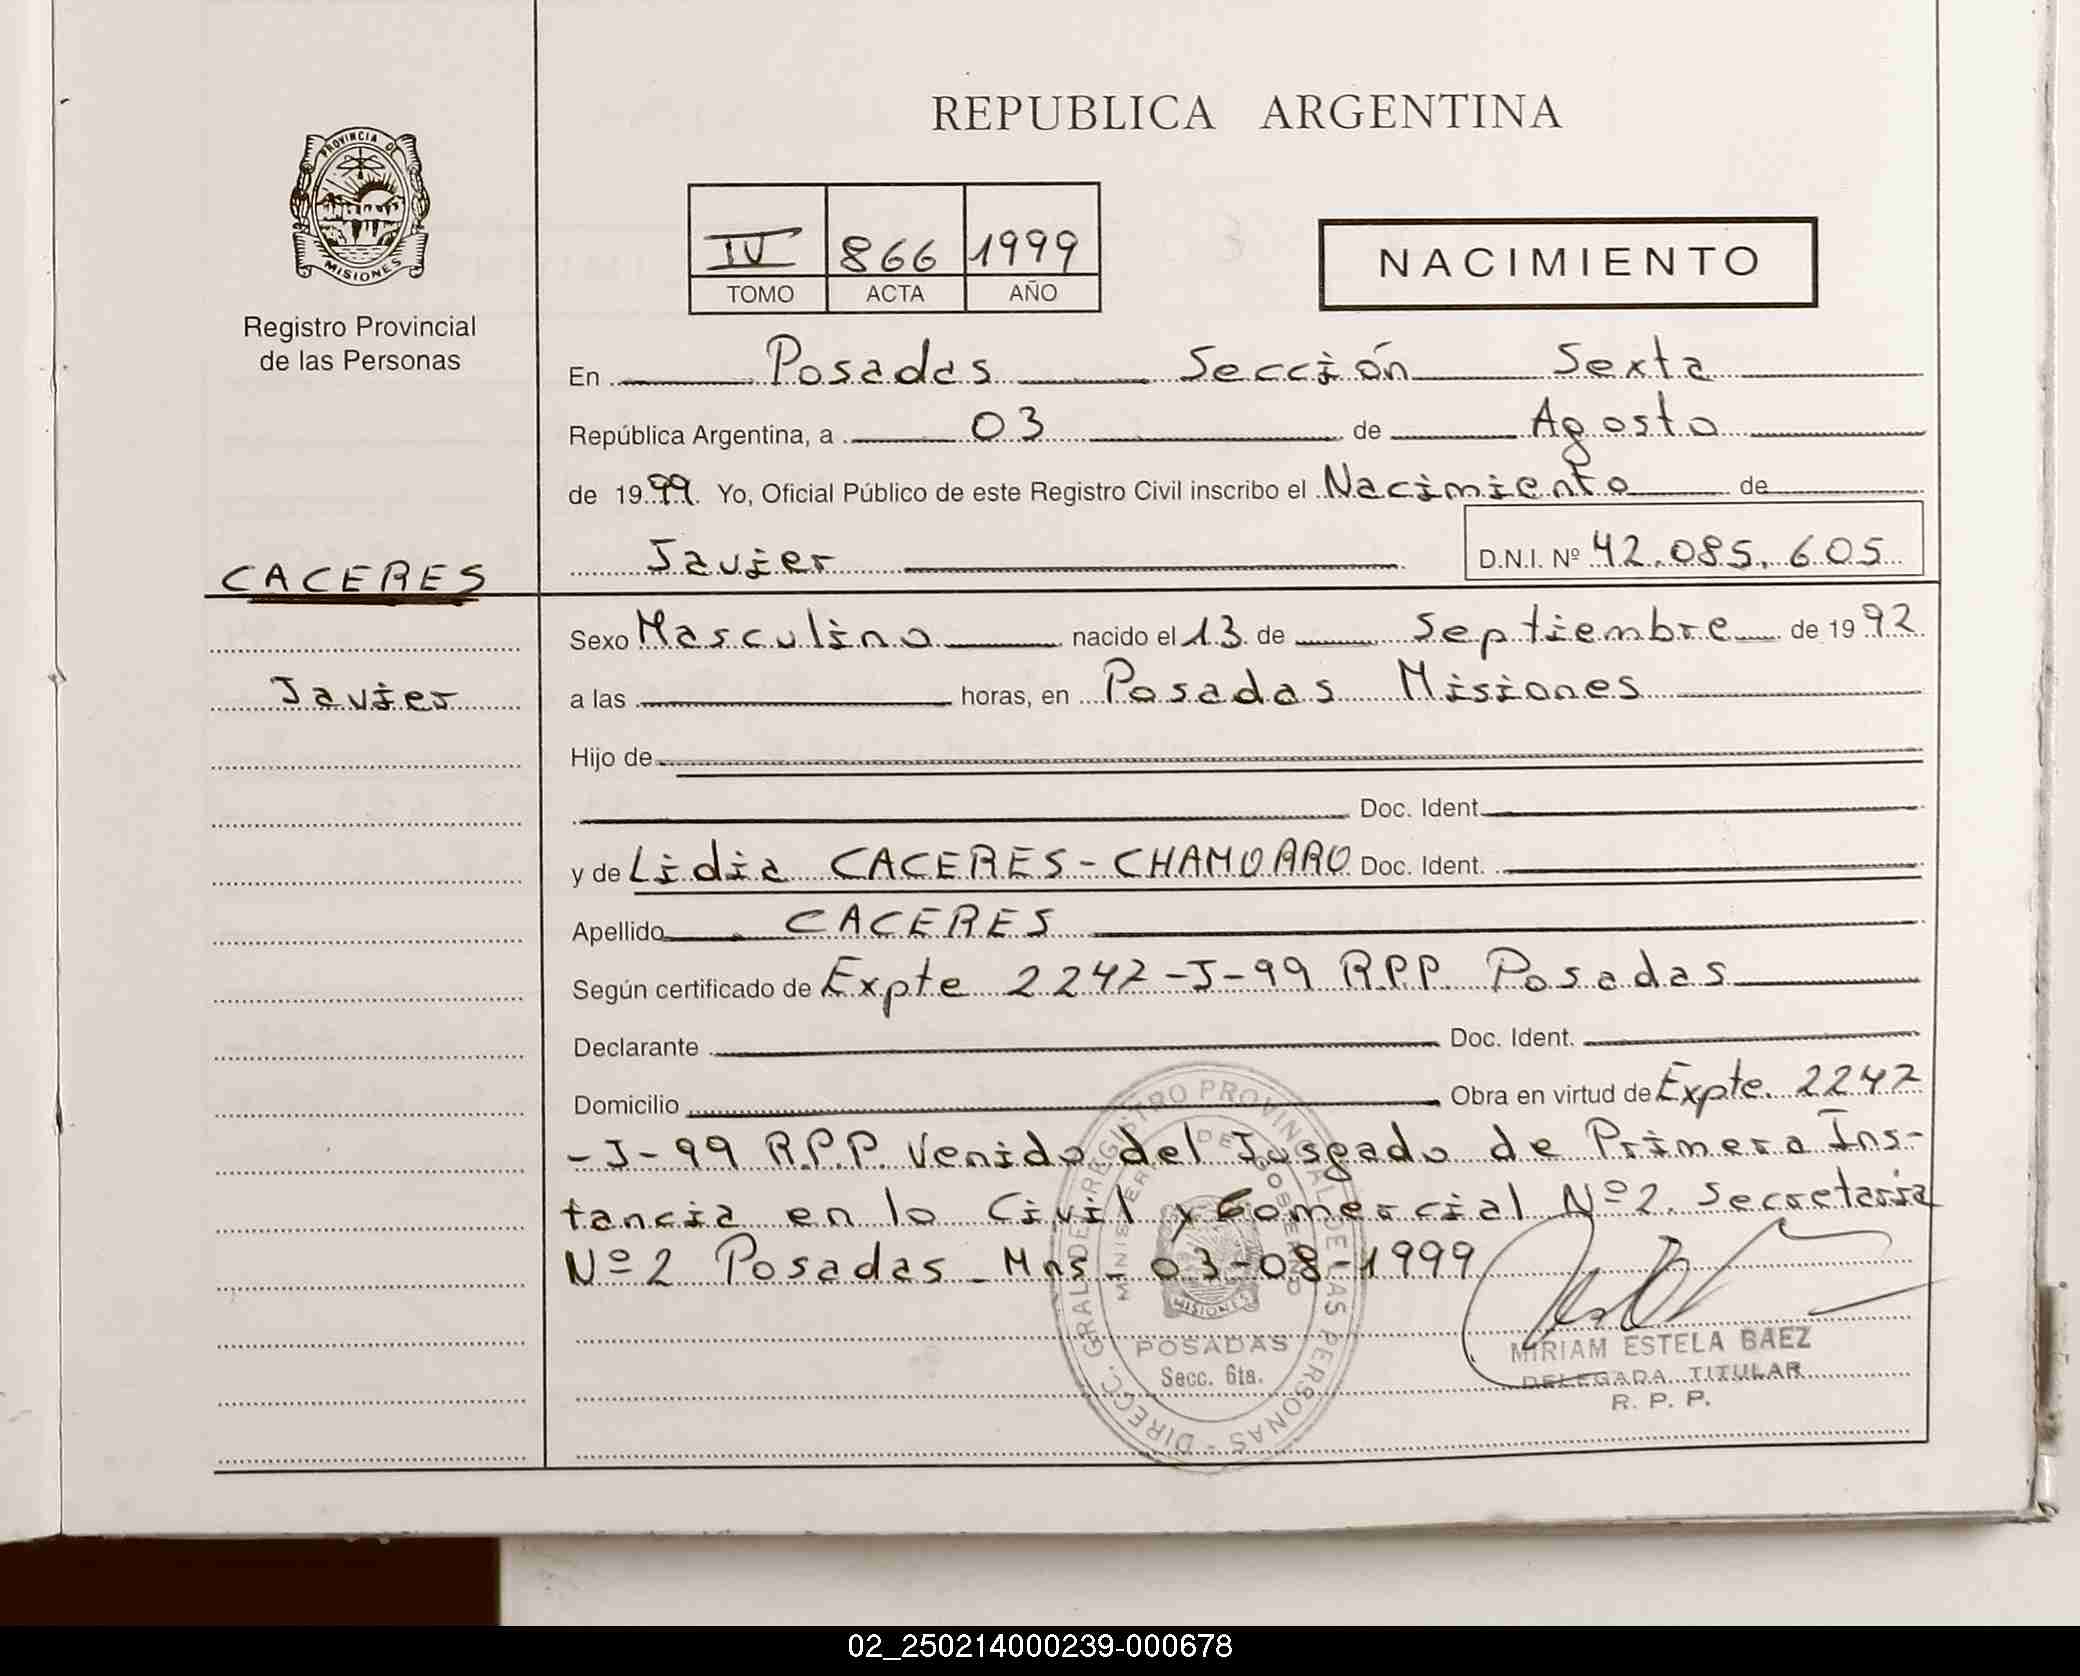 REPUBLICA ARGENTINA
PROVINCIA DE
MISIONES
Registro Provincial
de las Personas
IV 866 1999
TOMO ACTA AÑO
NACIMIENTO
En Posadas Sección Sexta
República Argentina, a 03 de Agosto
de 1999. Yo, Oficial Público de este Registro Civil inscribo el Nacimiento de
Javier D.N.I. Nº 42.085.605
CACERES
Javier
Sexo Masculino nacido el 13 de Septiembre de 1992
a las horas, en Posadas Misiones
Hijo de
Doc. Ident.
y de Lidia CACERES-CHAMORRO Doc. Ident.
Apellido CACERES
Según certificado de Expte 2247-J-99 R.P.P. Posadas
Declarante Doc. Ident.
Domicilio Obra en virtud de Expte. 2247
-J-99 R.P.P. Venido del Jusgado de Primera Ins-
tancia en lo Civil y Comercial Nº2. Secretaria
Nº2 Posadas - Mns - 03-08-1999
DIRECC. GRAL DE REGISTRO PROVINCIAL DE LAS PERSONAS -
MINISTERIO DE GOBIERNO
MISIONES
POSADAS
Secc. 6ta.
MIRIAM ESTELA BAEZ
DELEGADA TITULAR
R. P. P.
02_250214000239-000678